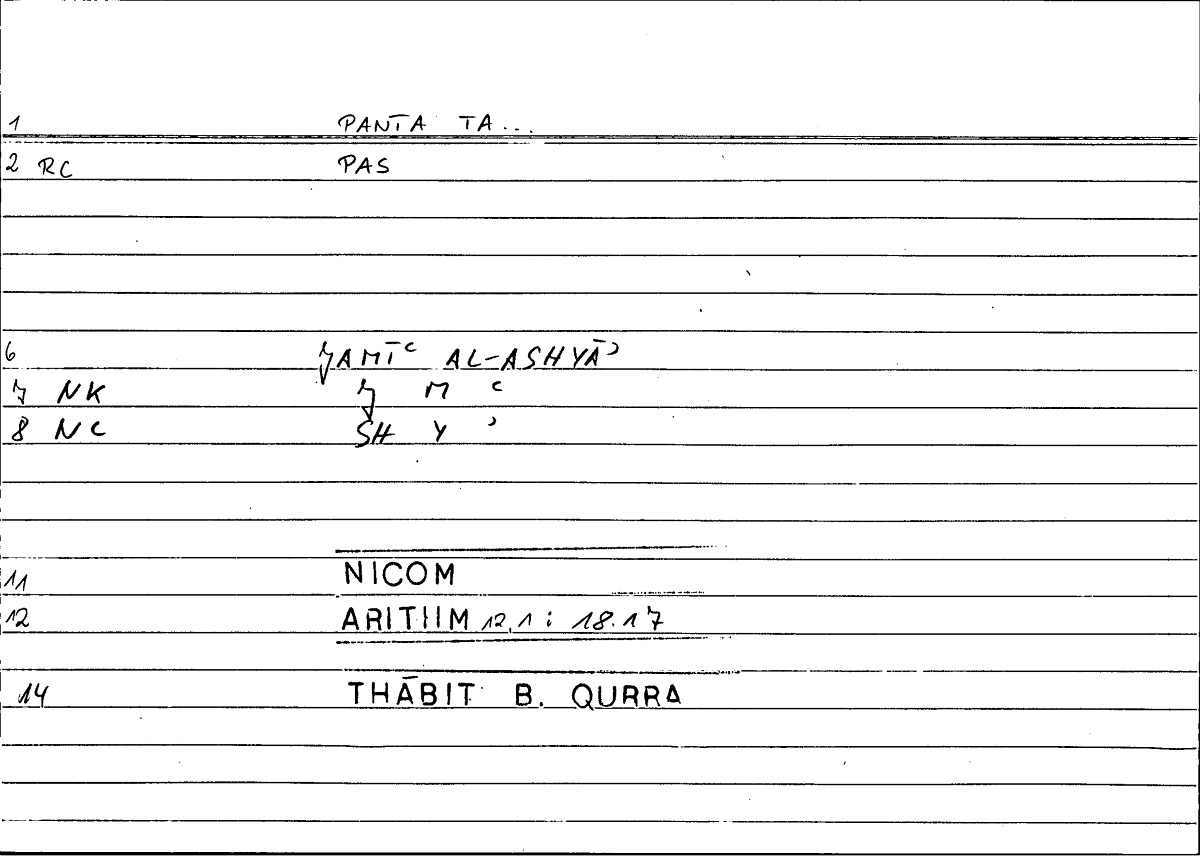 1 PANTA TA...
2 RC PAS
6 JAMĪʿ AL-ASHYĀʾ
7 NK J M ʿ
8 NC SH Y ʾ
11 NICOM
12 ARITHM 12.1 : 18.17
14 THĀBIT B. QURRA